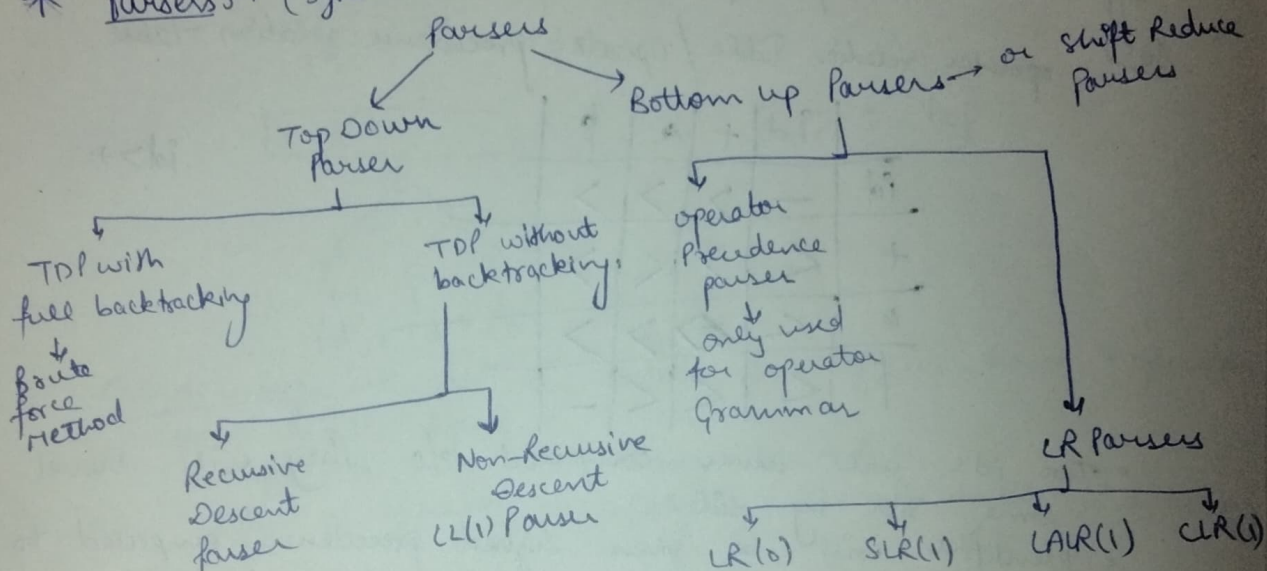 * Parsers :
Parsers
Top Down
Parser
Bottom up Parsers → or Shift Reduce
Parsers
TDP with
full backtracking
↓
Brute
force
Method
TDP without
backtracking.
Recursive
Descent
Parser
Non-Recursive
Descent
LL(1) Parser
operator
Precedence
parser
↓
only used
for operator
Grammar
LR Parsers
LR(0) SLR(1) LALR(1) CLR(1)